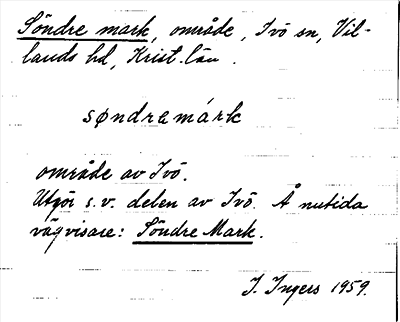 Söndre mark, område, Ivö sn, Vil-
lands hd, Krist. län.
søndremárk
område av Ivö.
Utgör s.v. delen av Ivö. Å nutida
vägvisare: Söndre Mark.
I. Ingers 1959.